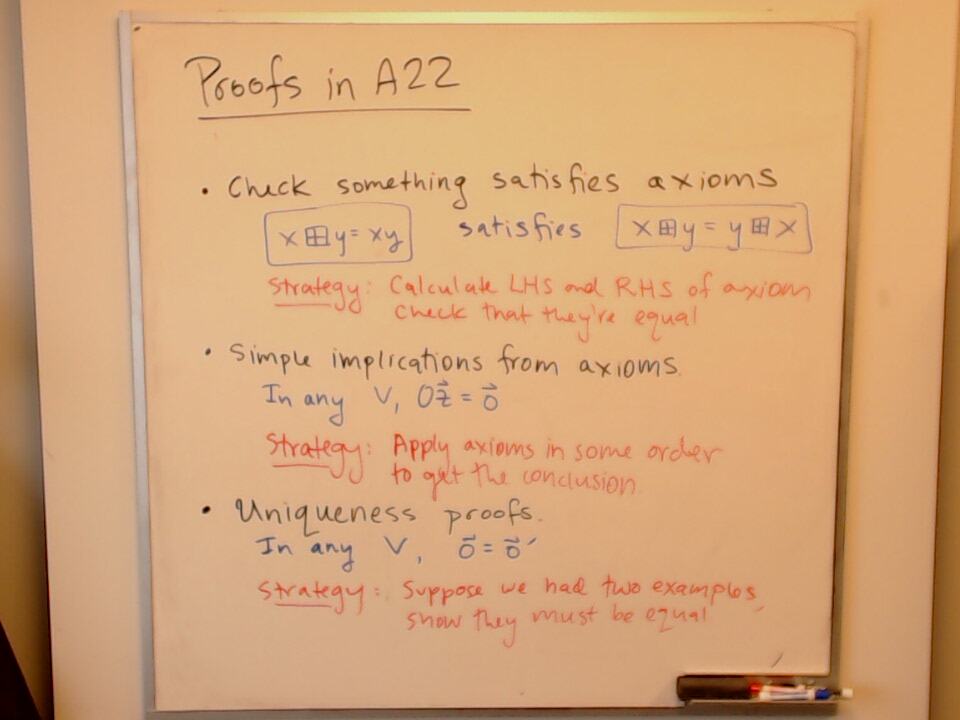 Proofs in A22
• Check something satisfies axioms
x ⊞ y = xy satisfies x ⊞ y = y ⊞ x
Strategy: Calculate LHS and RHS of axiom
check that they're equal
• Simple implications from axioms.
In any V, 0z⃗ = 0⃗
Strategy: Apply axioms in some order
to get the conclusion
• Uniqueness proofs.
In any V, 0⃗ = 0⃗′
Strategy: Suppose we had two examples,
show they must be equal